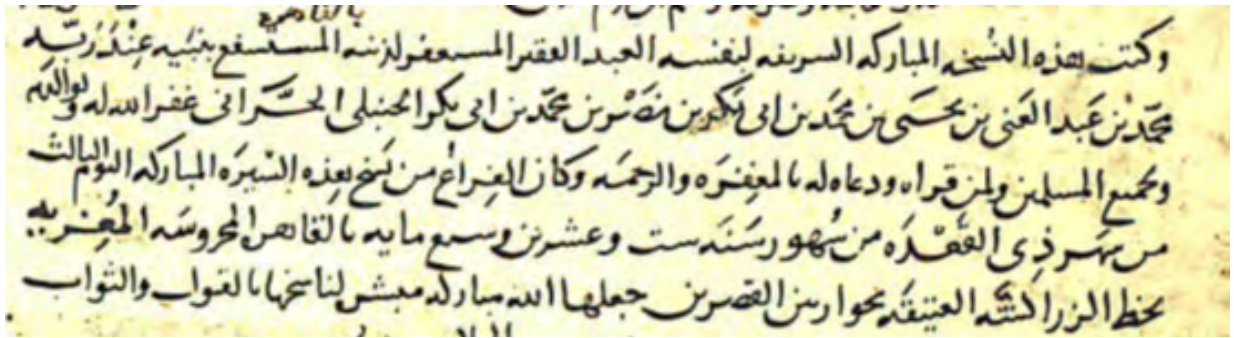 بالقاهرة
وكتب هذه النسخه المباركه الشريفه لنفسه العبد الفقير المستغفر لذنبه المستشفع بنبيه عند ربه
محمد بن عبد الغنى بن يحيى بن محمد بن ابى بكر بن نصر بن محمد بن ابى بكر الحنبلى الحرانى غفر الله له ولوالديه
ولجميع المسلمين ولمن قراه ودعا له بالمغفره والرحمه وكان الفراغ من نسخ هذه السيره المباركه اليوم الثالث
من شهر ذى القعده من شهور سنه ست وعشرين وسبع مايه بالقاهره المحروسه المعزيه
بخط العتيقه بجوار بين القصرين جعلها الله مباركه لناسخها والثواب